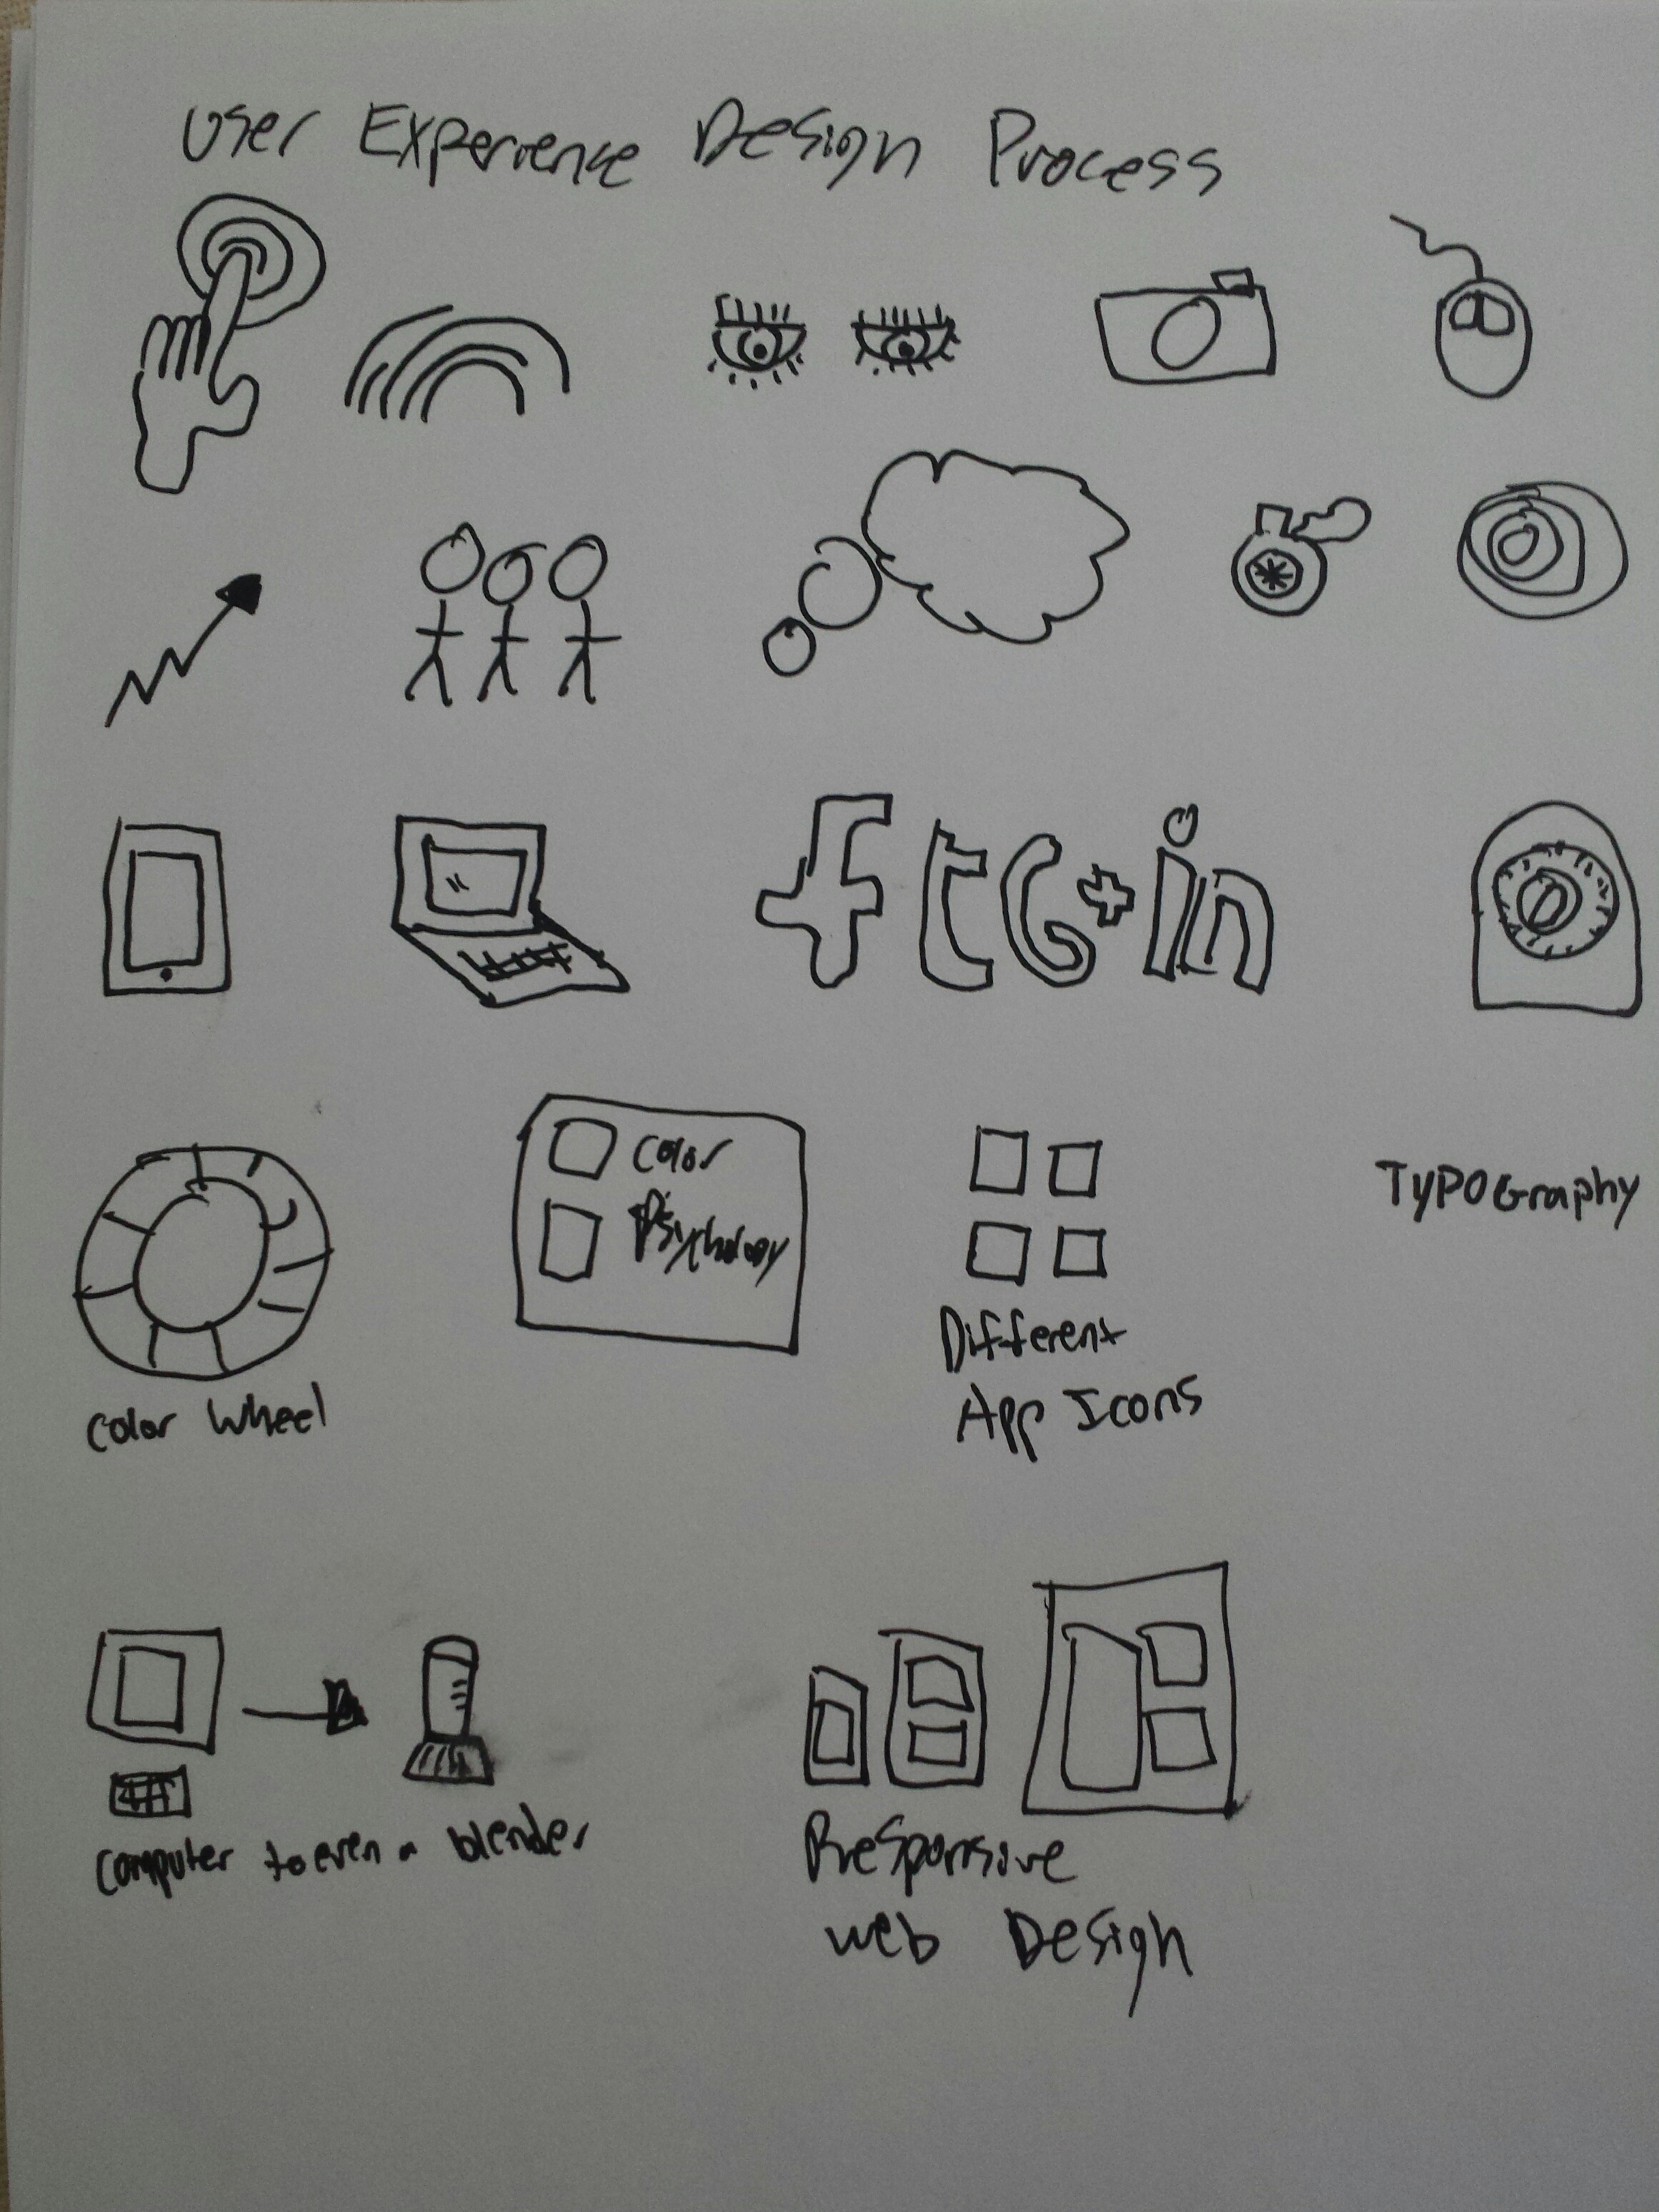 User Experience Design Process
f t G+ in
Color
Psychology
Typography
Different
App Icons
Color Wheel
Computer to even a blender
Responsive
Web Design